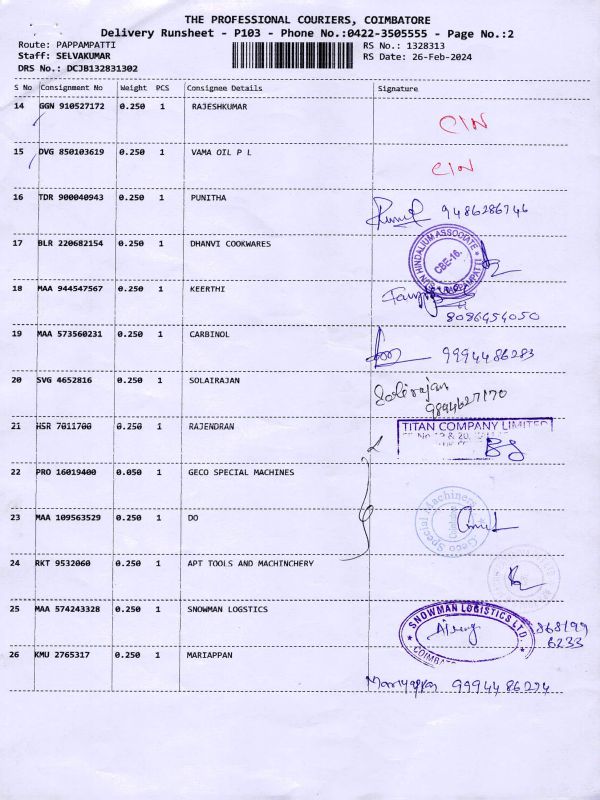 THE PROFESSIONAL COURIERS, COIMBATORE
Delivery Runsheet - P103 - Phone No.:0422-3505555 - Page No.:2
Route: PAPPAMPATTI RS No.: 1328313
Staff: SELVAKUMAR RS Date: 26-Feb-2024
DRS No.: DCJB132831302
S No Consignment No Weight PCS Consignee Details Signature
14 GGN 910527172 0.250 1 RAJESHKUMAR
CIN
15 DVG 850103619 0.250 1 VAMA OIL P L
CIN
16 TDR 900040943 0.250 1 PUNITHA
9486286746
17 BLR 220682154 0.250 1 DHANVI COOKWARES
HINDALIUM ASSOCIATE
CBE-16.
18 MAA 944547567 0.250 1 KEERTHI
8086454050
19 MAA 573560231 0.250 1 CARBINOL
9994486283
20 SVG 4652816 0.250 1 SOLAIRAJAN
Solirajan
9894627170
21 HSR 7011700 0.250 1 RAJENDRAN
TITAN COMPANY LIMITED
22 PRO 16019400 0.050 1 GECO SPECIAL MACHINES
23 MAA 109563529 0.250 1 DO
Geco Special Machiners
24 RKT 9532060 0.250 1 APT TOOLS AND MACHINCHERY
25 MAA 574243328 0.250 1 SNOWMAN LOGSTICS
SNOWMAN LOGISTICS LTD.
868199
6233
26 KMU 2765317 0.250 1 MARIAPPAN
Mariyappan 9994486274